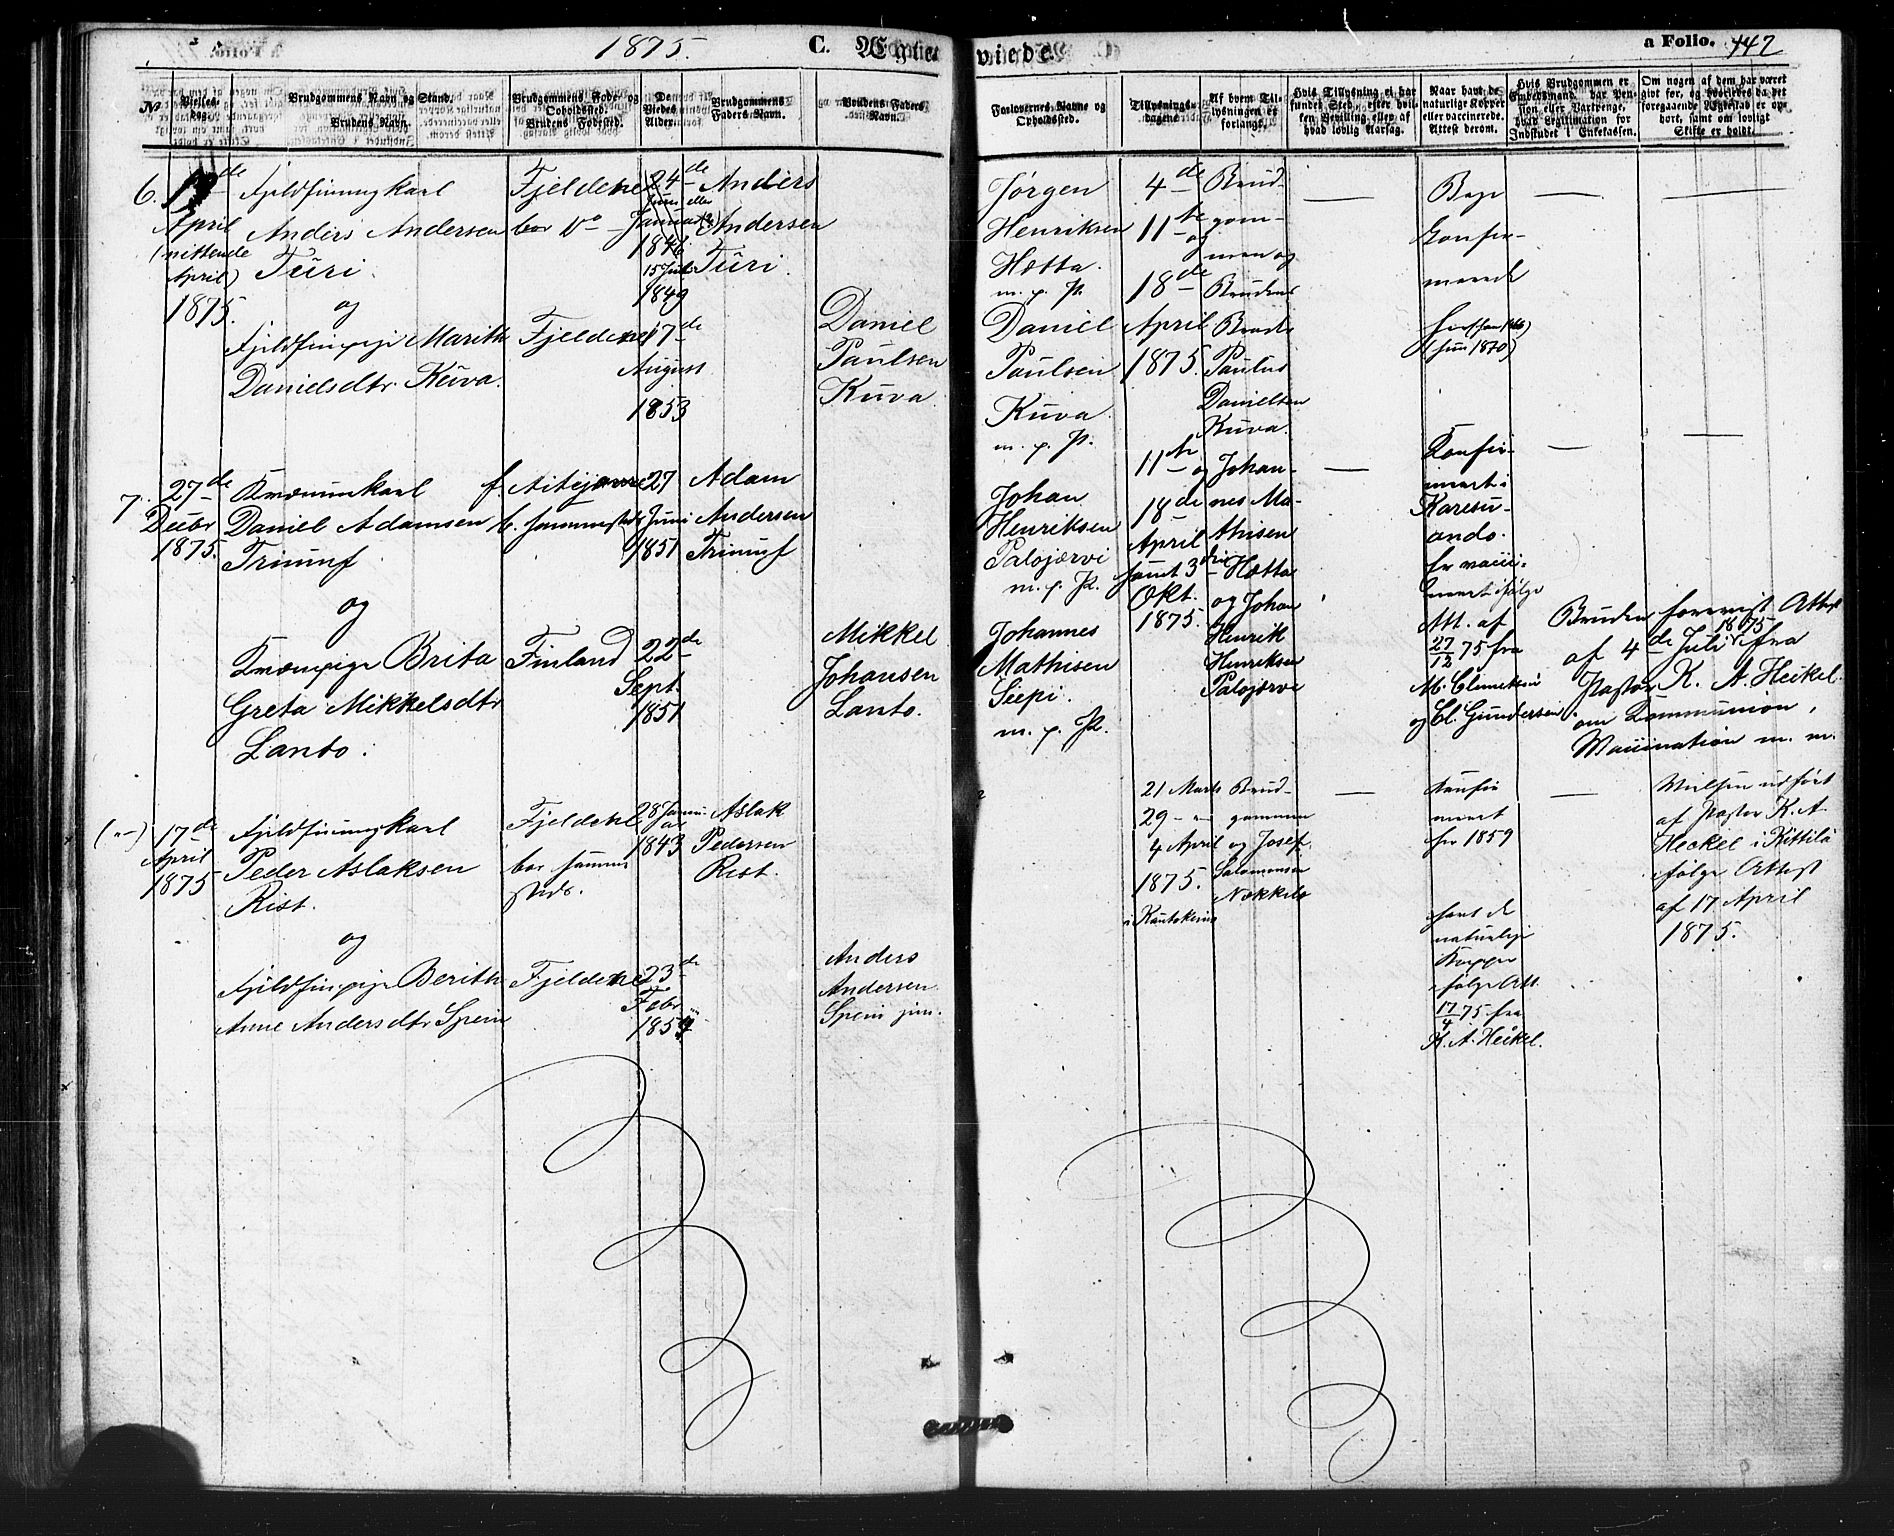 1875.
C. Ægtevviede.
a Folio. 147
No
Vielses-dag.
Brudgommens Navn og Stand.
Brudens Navn.
Brudgommens Føde- og Opholdssted.
Brudens Fødested.
De Viedes Alder.
Brudgommens Faders Navn.
Brudens Faders Navn.
Forlovernes Navne og Opholdssted.
Tillysnings-dagene
Af hvem Til-lysningen er forlangt.
Hvis Tillysning ei har fundet Sted, efter hvil-ken Bevilling eller af hvad lovlig Aarsag.
Naar havt de naturlige Kopper eller vaccinerede. Attest derom.
Hvis Brudgommen er Embedsmand, har Pen-sion eller Vartpenge, hvad Legitimation for Indskudet i Enkekassen.
Om nogen af dem har været givt for, og hvorledes da det foregaaende Ægteskab er op-hørt, samt om lovligt Skifte er holdt.
6.
April
(nittende
April)
1875.
Fjeldfinungkarl
Anders Andersen
Turi.
og
Fjeldfinpige Marith
Danielsdtr. Kuva.
Fjeldene
bor Do
Fjeldene
24de
Juni eller
Januar
1846
15 Juli
1849
17de
August
1853
Anders
Andersen
Turi.
Daniel
Paulsen
Kuva.
Jørgen
Henriksen
Hætta.
m. p. P.
Daniel
Paulsen
Kuva.
m. p. P.
4de
11te
og
18de
April
1875.
Brud-
gom-
men og
Brudens
Paulus
Danielsen
Kuva.
Konfir-
merede
(hun 1870)
7.
27de
Decbr
1875.
Kvænunkarl
Daniel Adamsen
Triumf
og
Kvænpige Brita
Greta Mikkelsdtr
Lanto.
f. Aitejavre
b. sammesteds
Finland
27
Juni
1851
22de
Sept.
1851
Adam
Andersen
Triumf
Mikkel
Johansen
Lanto.
Johan
Henriksen
Palojærvi
m. p. P.
Johannes
Mathisen
Siepi.
m. p. P.
11te
og
18de
April
samt 3die
Okt.
1875.
Johan-
nes Ma-
thisen
Hætta
og Johan
Henrik
Henriksen
Palojærvi
Konfir-
mert i
Karesu-
ando.
Er vacci-
neret ifølge
Att. af
27/12 75 fra
M. Clemetsen
og Cl. Gundersen.
Bruden forevist Attest
af 4de Juli 1875 fra
Pastor K. A. Heikel
om Kommunion,
Vaccination m. m.
(-"-)
17de
April
1875
Fjeldfinungkarl
Peder Aslaksen
Rist.
og
Fjeldfinpige Berith
Anne Andersdtr Spein
Fjeldene
bor sammesteds.
Fjeldene
28 Januar
1843
23de
Febr
1854
Aslak
Pedersen
Rist.
Anders
Andersen
Spein jun.
21 Marts
29 -"-
4 April
1875.
i Kautokeino
Brud-
gommen
og Josef
Salomonsen
Nækkelo
Konfir
meret
før 1859
havt de
naturlige
Kopper
ifølge Att.
17/4 75 fra
K. A. Heikel.
Vielsen udført
af Pastor K. A.
Heikel i Kittilä
ifølge Attest
af 17 April
1875.